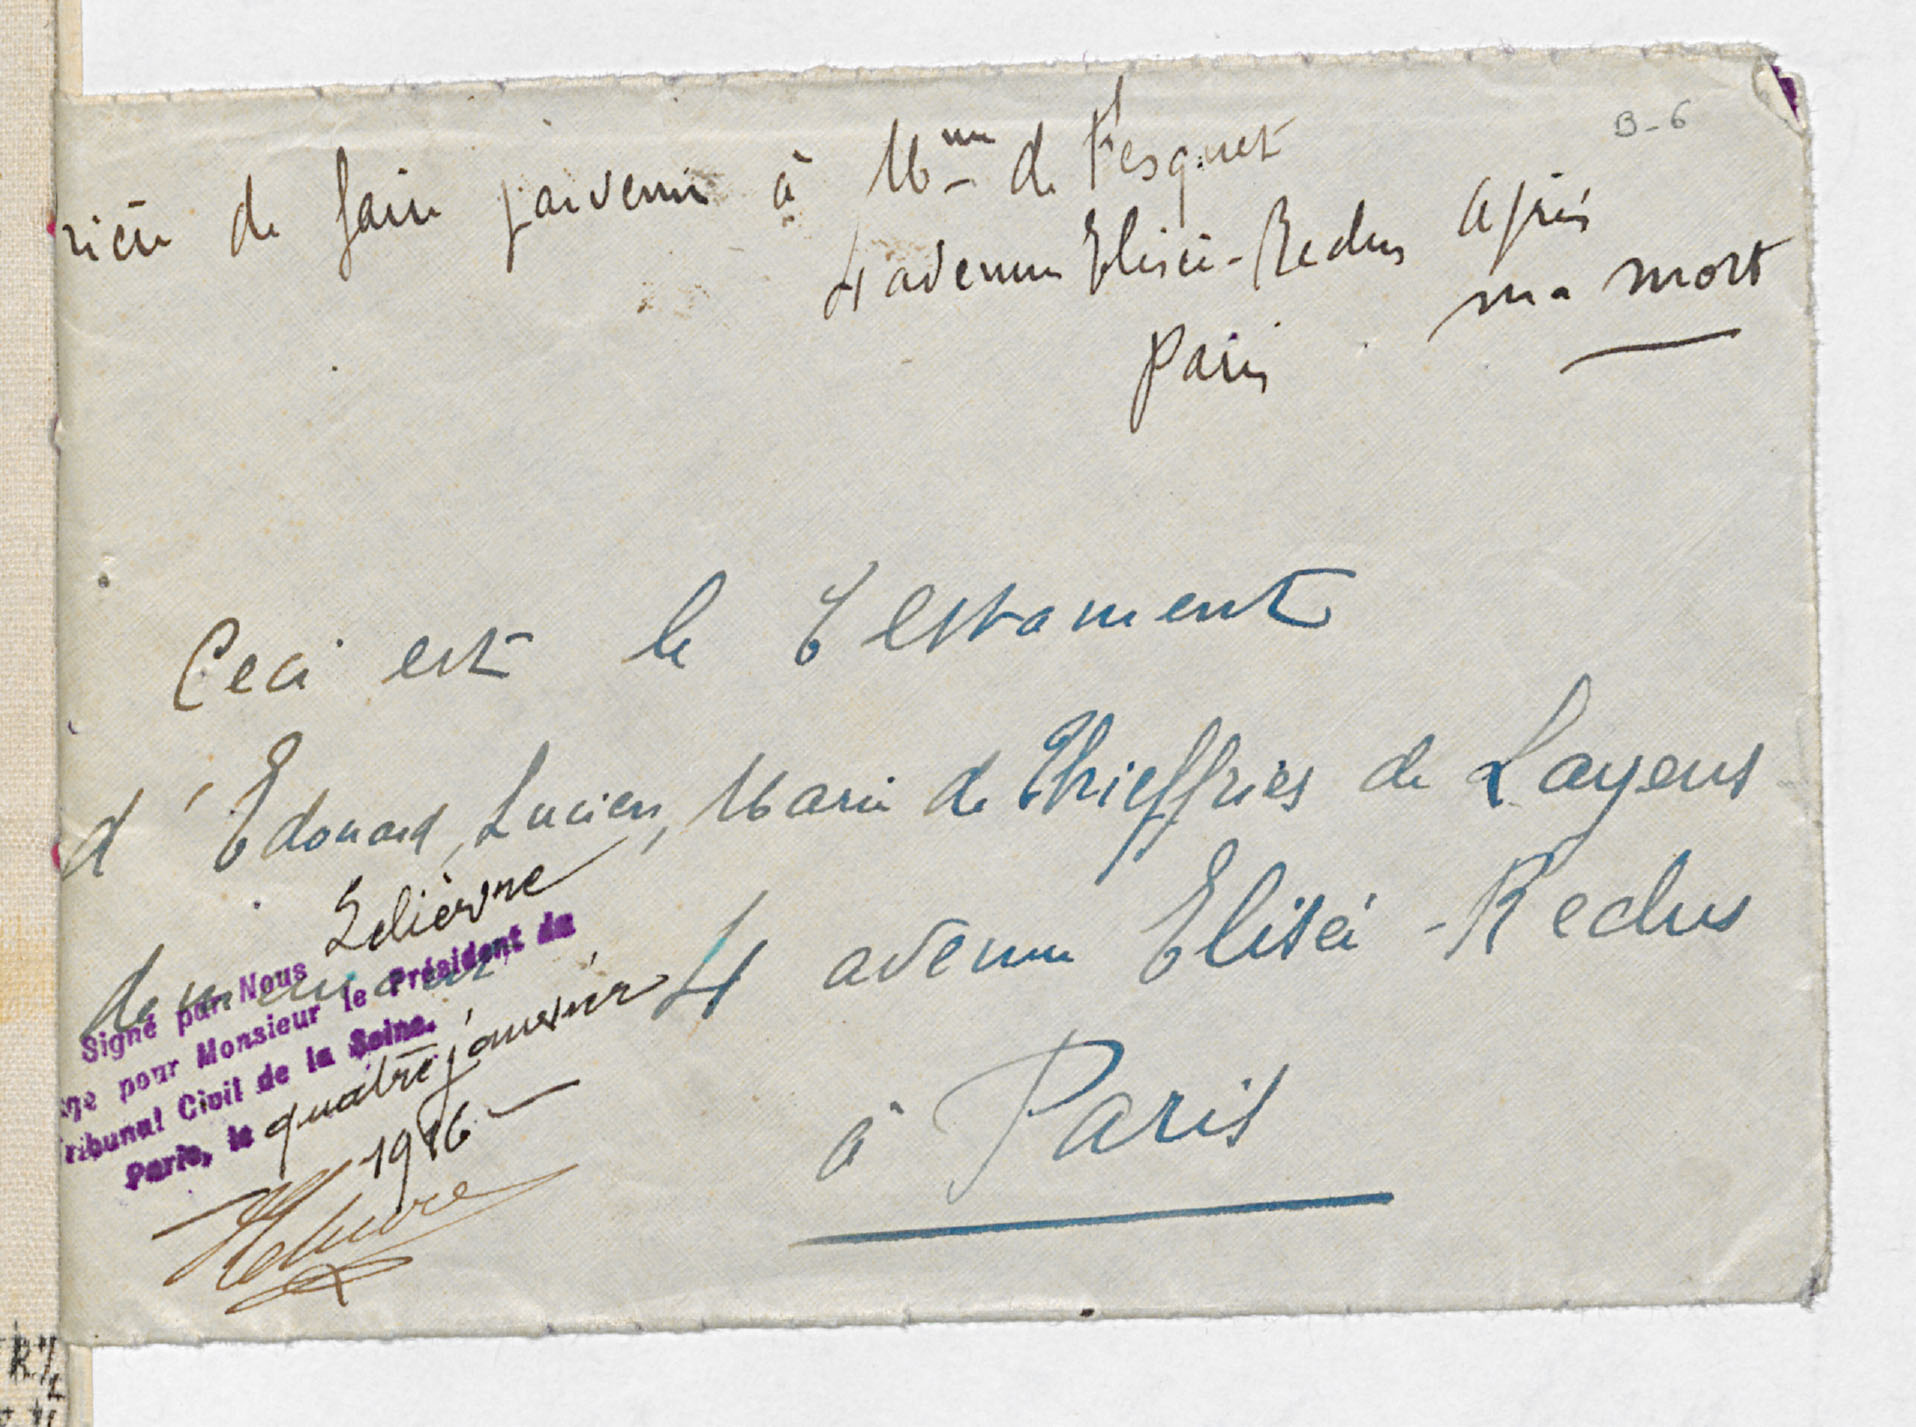 B-6
rière de faire parvenir à Mme de Fesquet
4 avenue Elisée-Reclus après
ma mort
Paris
Ceci est le Testament
d'Edouard, Lucien, Marie de Thieffries de Layens
demeurant 4 avenue Elisée-Reclus
à Paris
Signé par Nous Lelièvre
pour Monsieur le Président du
ribunal Civil de la Seine.
Paris, le quatre janvier
1916